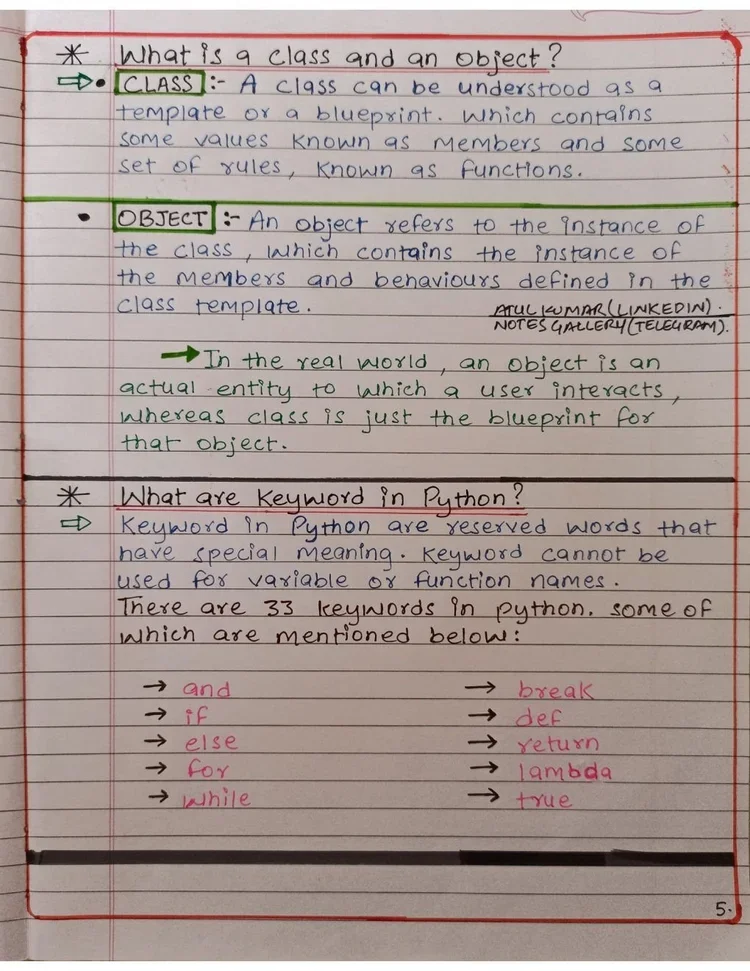 * What is a class and an object?
⇨ • CLASS :- A class can be understood as a
template or a blueprint. Which contains
some values known as members and some
set of rules, known as functions.
• OBJECT :- An object refers to the instance of
the class, which contains the instance of
the members and behaviours defined in the
class template.
ATUL KUMAR (LINKEDIN).
NOTES GALLERY (TELEGRAM).
→ In the real world, an object is an
actual entity to which a user interacts,
whereas class is just the blueprint for
that object.
* What are Keyword in Python?
⇨ Keyword in Python are reserved words that
have special meaning. Keyword cannot be
used for variable or function names.
There are 33 keywords in python. some of
which are mentioned below:
→ and → break
→ if → def
→ else → return
→ for → lambda
→ while → true
5.